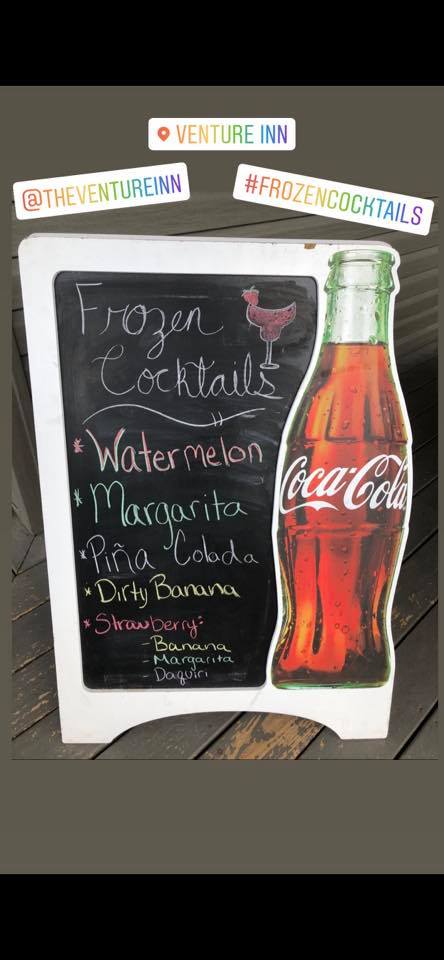 VENTURE INN
@THEVENTUREINN
#FROZENCOCKTAILS
Frozen
Cocktails
* Watermelon
* Margarita
* Piña Colada
* Dirty Banana
* Strawberry:
- Banana
- Margarita
- Daquiri
Coca-Cola